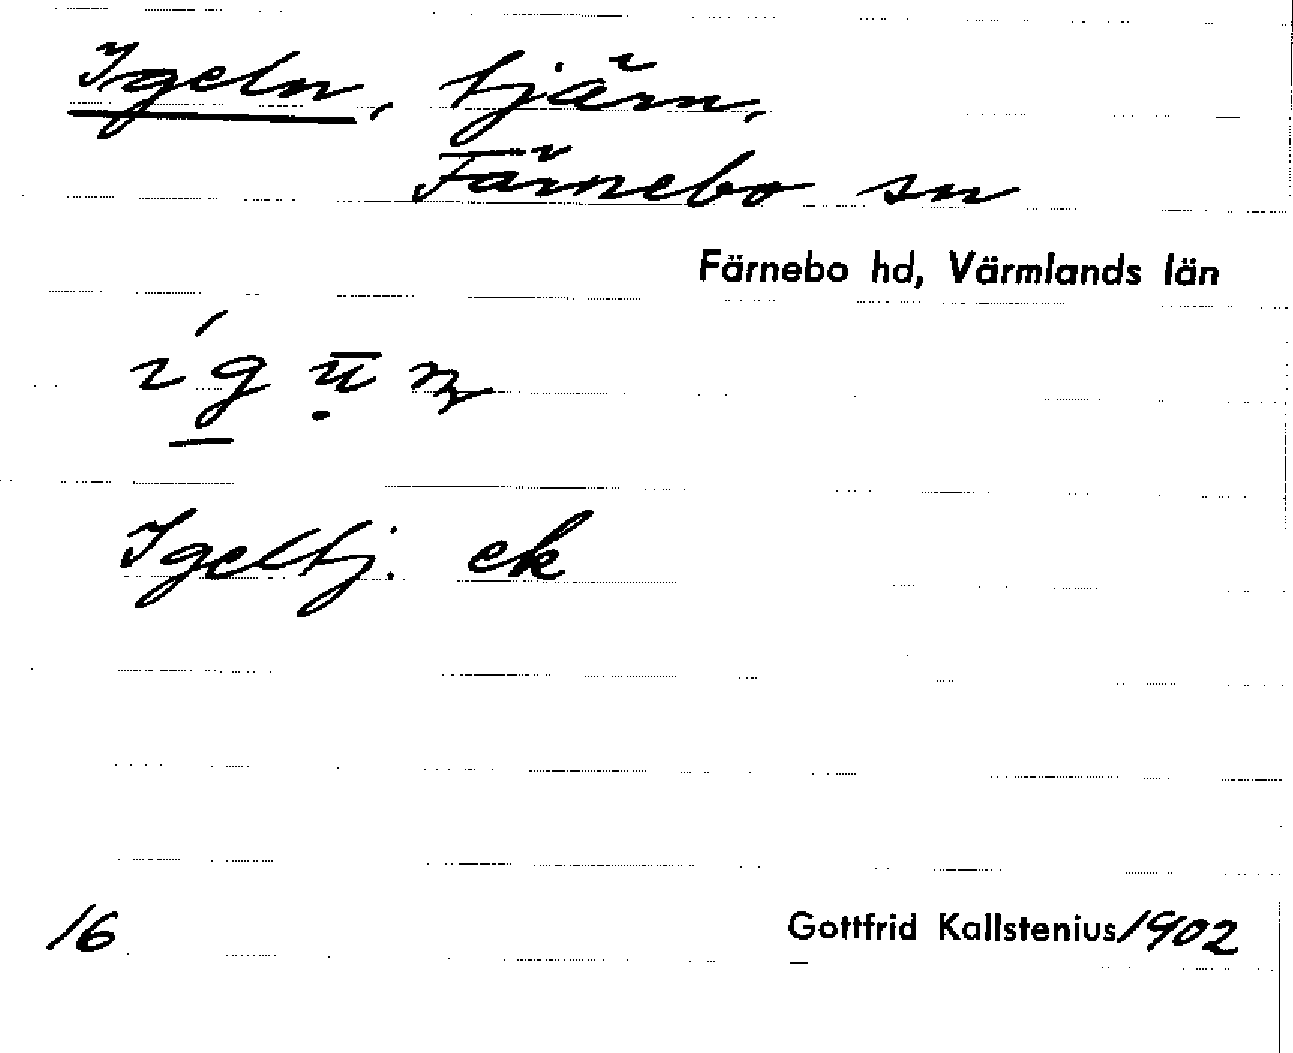 Igeln, tjärn,
Färnebo sn
Färnebo hd, Värmlands län
Igeltj. ek
16
Gottfrid Kallstenius 1902